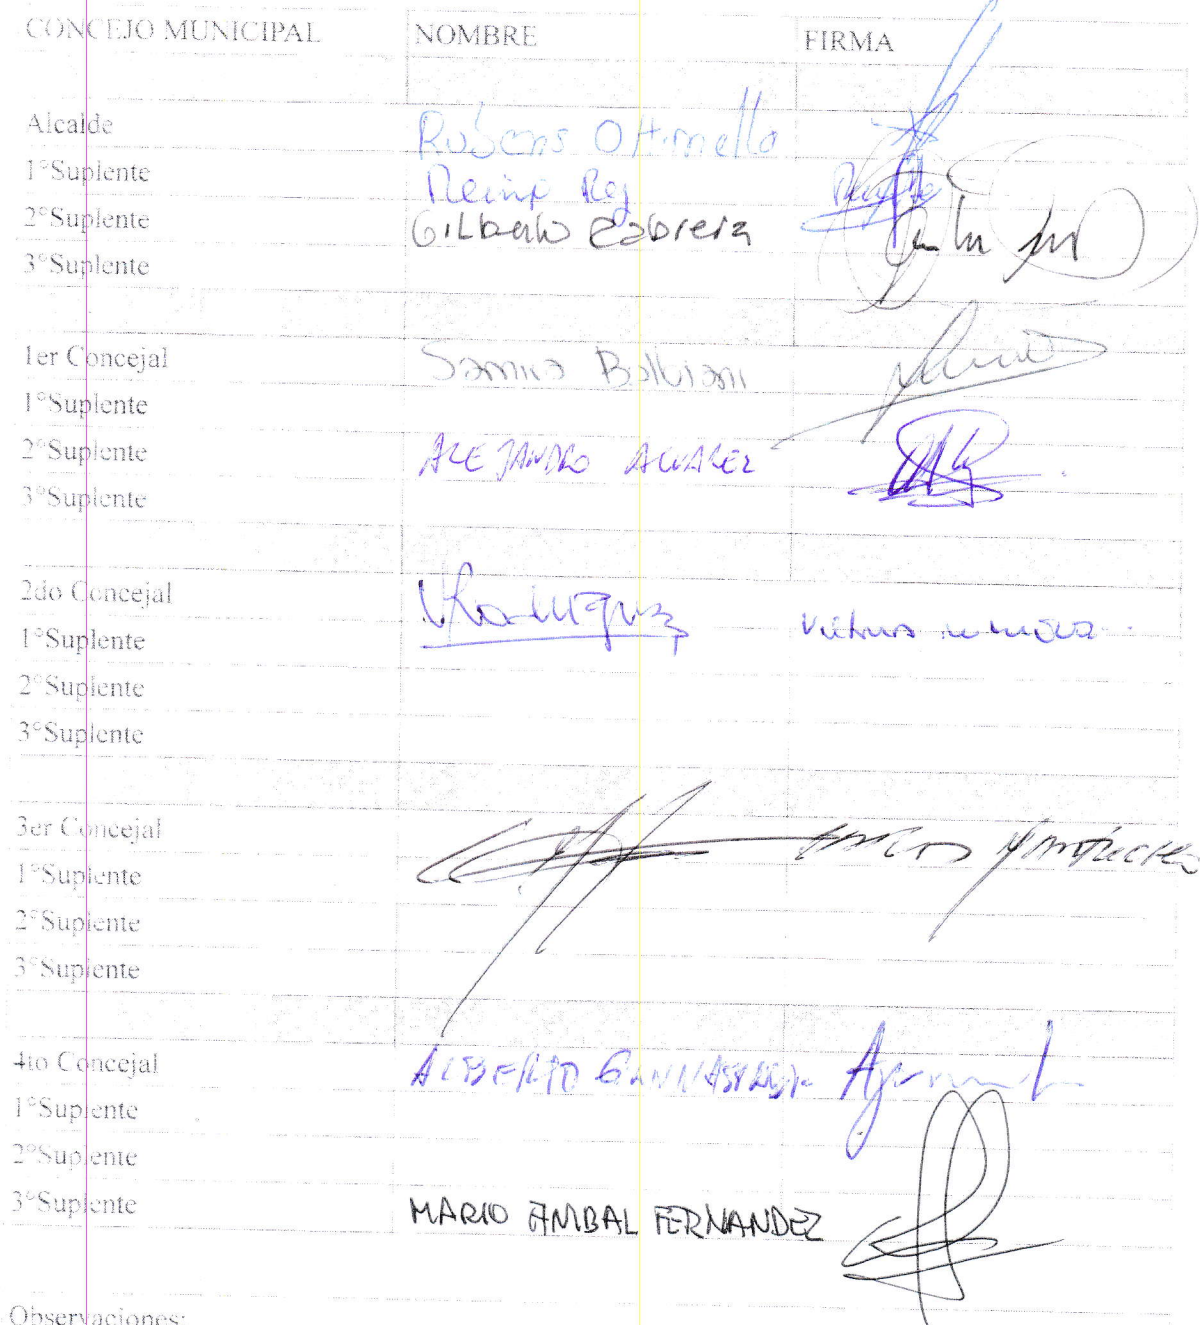 CONCEJO MUNICIPAL NOMBRE FIRMA
Alcalde Rubens Ottonello
1°Suplente Rey
2°Suplente Gilberto Cabrera
3°Suplente
1er Concejal Samira Balbiani
1°Suplente
2°Suplente ALEJANDRO ALVAREZ
3°Suplente
2do Concejal VRodriguez
1°Suplente
2°Suplente
3°Suplente
3er Concejal
1°Suplente
2°Suplente
3°Suplente
4to Concejal ALBERTO
1°Suplente
2°Suplente
3°Suplente MARIO ANIBAL FERNANDEZ
Observaciones: